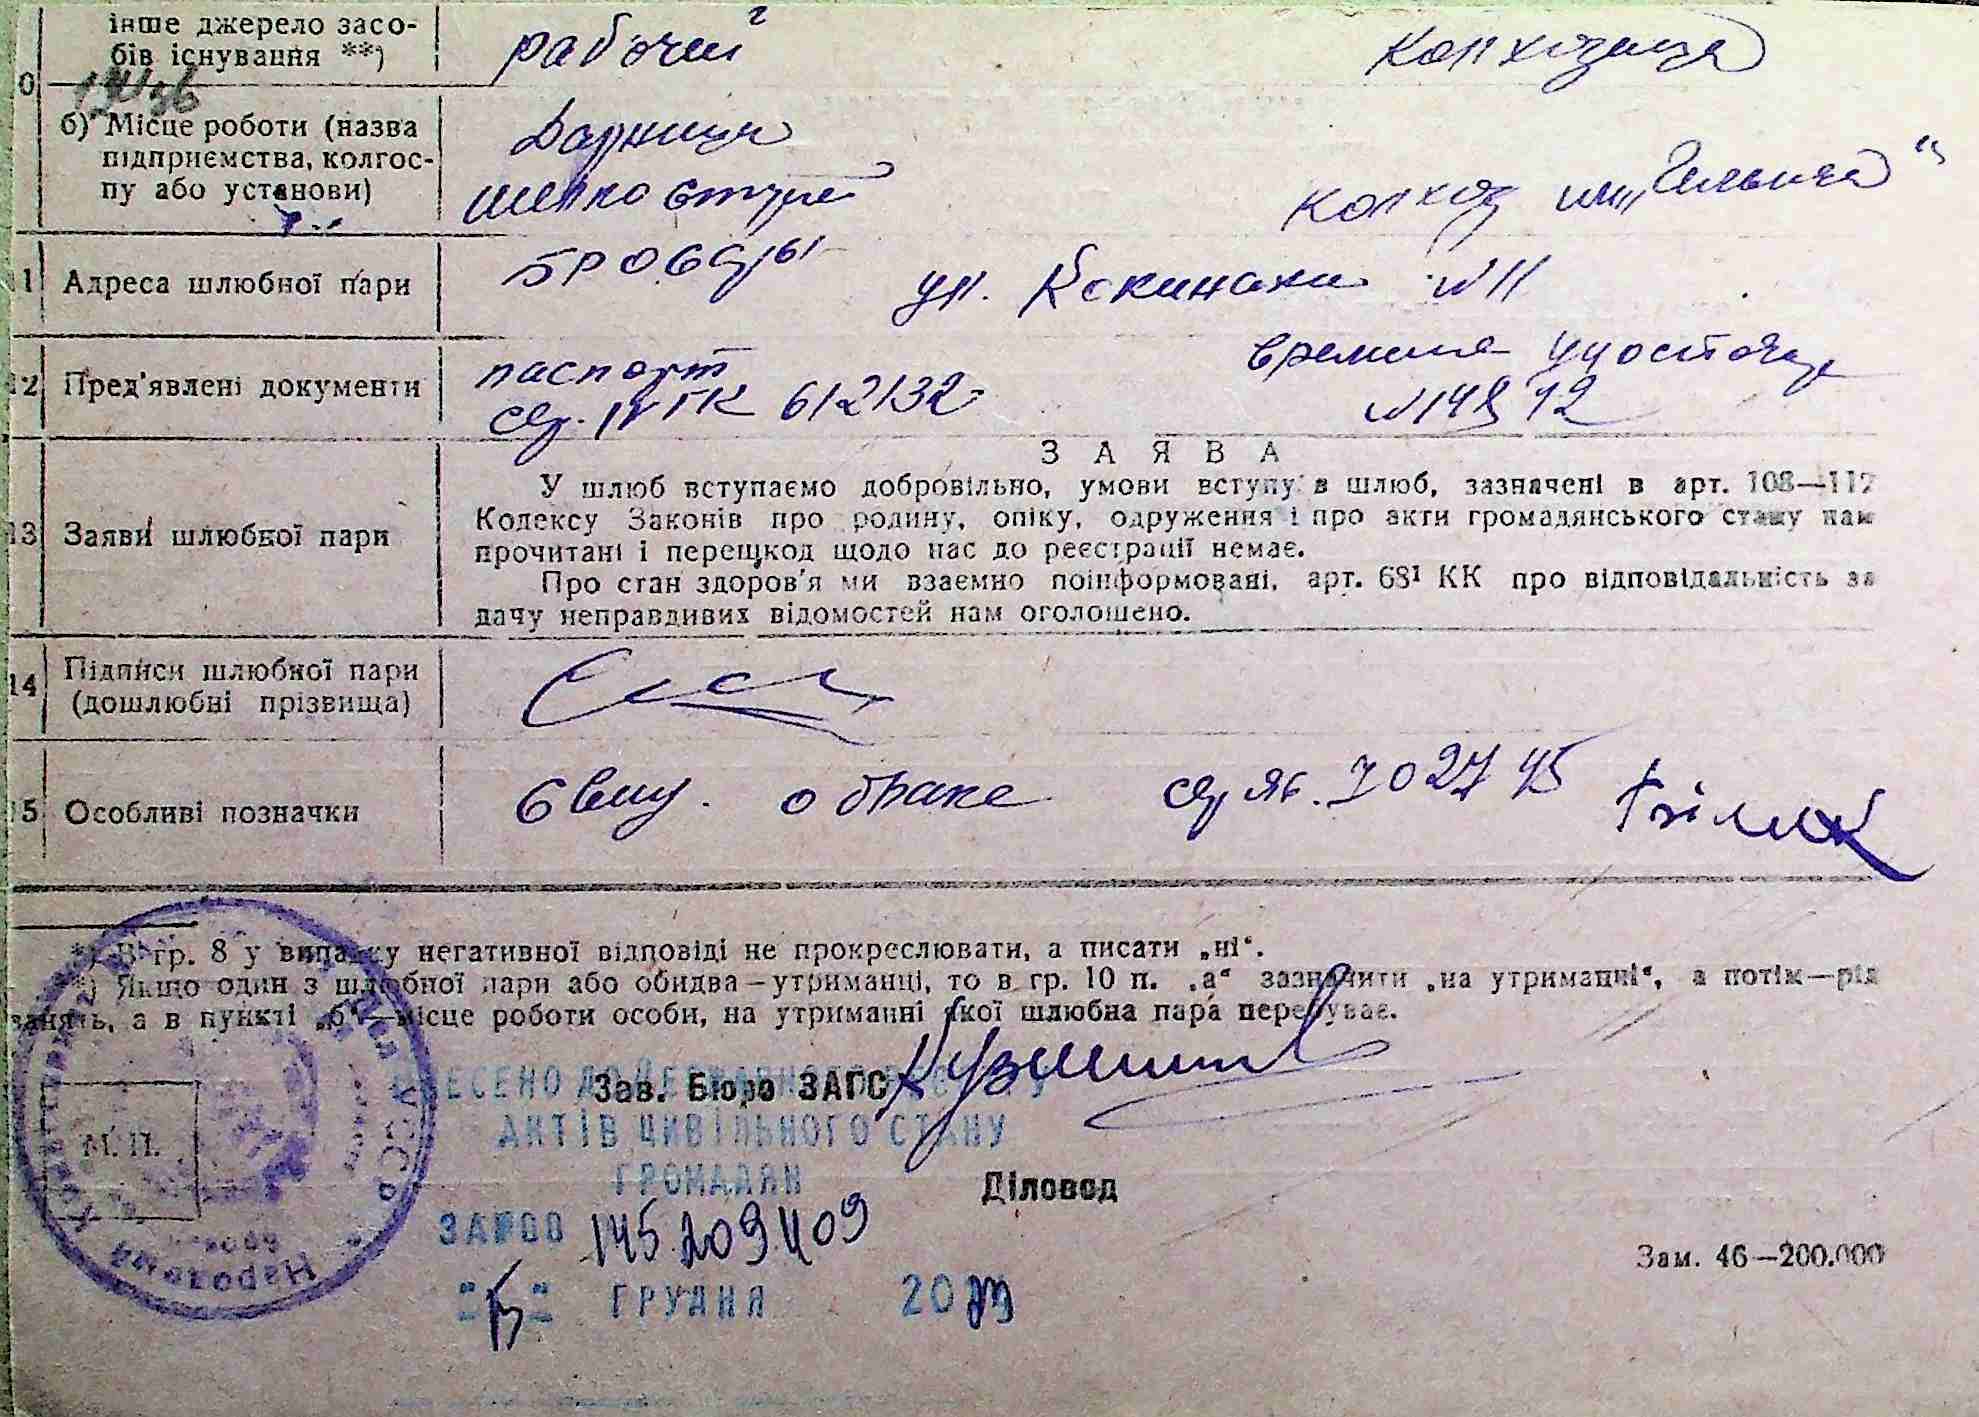 інше джерело засо-
бів існування **)
рабочий
колхозница
б) Місце роботи (назва
підприємства, колгос-
пу або установи)
Дарница
шелкострой
колхоз им „Ильича“
11 Адреса шлюбної пари
Бровары
ул. Кокинаки №11
12 Пред'явлені документи
паспорт
сер. IV ГК 612132
№
13 Заяви шлюбної пари
ЗАЯВА
У шлюб вступаємо добровільно, умови вступу в шлюб, зазначені в арт. 108—117
Кодексу Законів про родину, опіку, одруження і про акти громадянського стану нам
прочитані і перешкод щодо нас до реєстрації немає.
Про стан здоров'я ми взаємно поінформовані, арт. 68¹ КК про відповідальність за
дачу неправдивих відомостей нам оголошено.
14 Підписи шлюбної пари
(дошлюбні прізвища)
15 Особливі позначки
о браке
*) В гр. 8 у випадку негативної відповіді не прокреслювати, а писати „ні“.
*) Якщо один з шлюбної пари або обидва—утриманці, то в гр. 10 п. „а“ зазначити „на утриманні“, а потім—рід
занять, а в пункті „б“—місце роботи особи, на утриманні якої шлюбна пара перебуває.
Зав. Бюро ЗАГС
ВНЕСЕНО ДО ДЕРЖАВНОГО РЕЄСТРУ
АКТІВ ЦИВІЛЬНОГО СТАНУ
ГРОМАДЯН
М. П.
Діловод
ЗА №00 145209409
ГРУДНЯ 20
Зам. 46—200.000